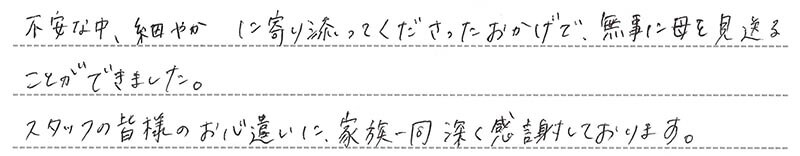 不安な中、細やか に寄り添ってくださったおかげで、無事に母を見送る
ことができました。
スタッフの皆様のお心遣いに、家族一同深く感謝しております。